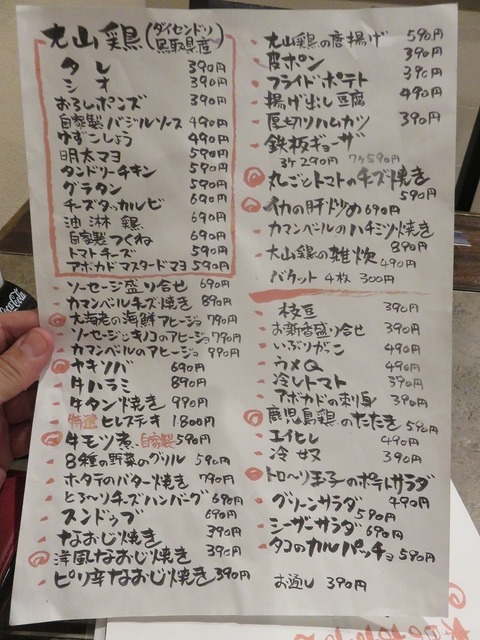 大山鶏(ダイセンドリ鳥取県産)
タレ 390円
シオ 390円
おろしポンズ 390円
自家製バジルソース 490円
ゆずこしょう 490円
明太マヨ 590円
タンドリーチキン 590円
グラタン 590円
チーズタッカルビ 690円
油淋鶏 690円
自家製つくね 690円
トマトチーズ 590円
アボカドマスタードマヨ 590円
ソーセージ盛り合せ 690円
カマンベールチーズ焼き 890円
大海老の海鮮アヒージョ 790円
ソーセージとキノコのアヒージョ 790円
カマンベールのアヒージョ 990円
ヤキソバ 690円
牛ハラミ 890円
牛タン焼き 990円
特選ヒレステーキ 1.800円
牛モツ煮、自家製 590円
8種の野菜のグリル 590円
ホタテのバター焼き 790円
とろ〜りチーズハンバーグ 690円
スンドゥブ 690円
なおじ焼き 390円
洋風なおじ焼き 390円
ピリ辛なおじ焼き 390円
大山鶏の唐揚げ 590円
皮ポン 390円
フライドポテト 390円
揚げ出し豆腐 490円
厚切りハムカツ 390円
鉄板ギョーザ
3ケ290円 7ケ590円
丸ごとトマトのチーズ焼き
590円
イカの肝炒め 690円
カマンベールのハチミツ焼き
890円
大山鶏の雑炊 490円
バケット 4枚 300円
枝豆 390円
お新香盛り合せ 390円
いぶりがっこ 490円
ウメQ 490円
冷しトマト 390円
アボカドの刺身 390円
鹿児島鶏のたたき 590円
エイヒレ 490円
冷奴 390円
トロ〜リ玉子のポテトサラダ
490円
グリーンサラダ
590円
シーザーサラダ 690円
タコのカルパッチョ 590円
お通し 390円